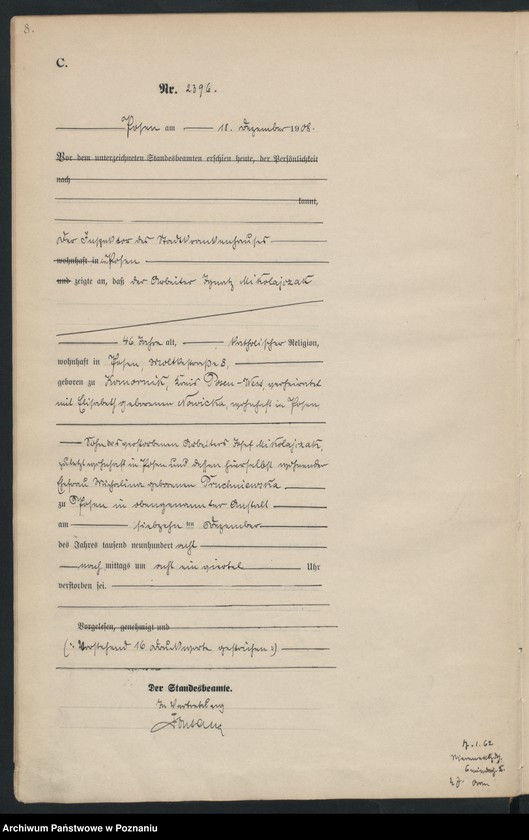 8.
C.
Nr. 2396.
Posen am 18. Dezember 1908.
Vor dem unterzeichneten Standesbeamten erschien heute, der Persönlichkeit
nach
kannt,
Der Inspektor des Stadtkrankenhauses
wohnhaft in in Posen
und zeigte an, daß der Arbeiter Ignatz Mikolajczak
46 Jahre alt, katholischer Religion,
wohnhaft in Posen, Moltkestraße 8,
geboren zu Komornik, Kreis Posen-West, verheiratet
mit Elisabeth geborenen Nowicka, wohnhaft in Posen
Sohn des verstorbenen Arbeiters Josef Mikolajczak,
zuletzt wohnhaft in Posen und dessen hierselbst wohnender
Ehefrau Michalina geborenen
zu Posen in obengenannter Anstalt
am siebzehn ten Dezember
des Jahres tausend neunhundert acht
nach mittags um acht ein viertel Uhr
verstorben sei.
Vorgelesen, genehmigt und
(: Vorstehend 16 Druckworte gestrichen :)
Der Standesbeamte.
In Vertretung
1.62
Archiwum Państwowe w Poznaniu